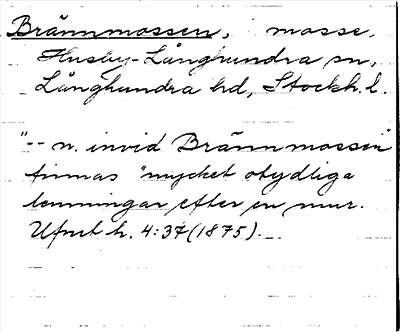 Brännmossen, mosse,
Husby-Långhundra sn,
Långhundra hd, Stockh. l.
"-- n. invid Brännmossen"
finnas "mycket otydliga
lemningar efter en mur.
Ufmt h. 4:37 (1875).